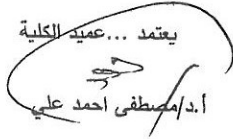 يعتمد ...عميد الكلية
أ.د/مصطفى احمد علي